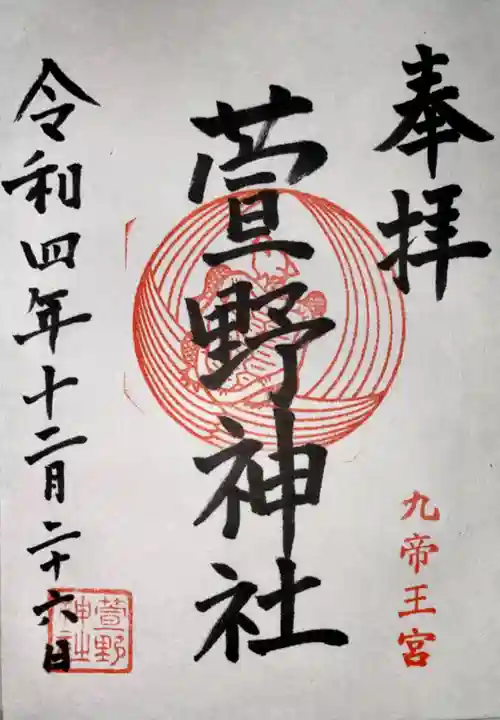 奉拝
九帝王宮
萱野神社
令和四年十二月二十六日
萱野
神社